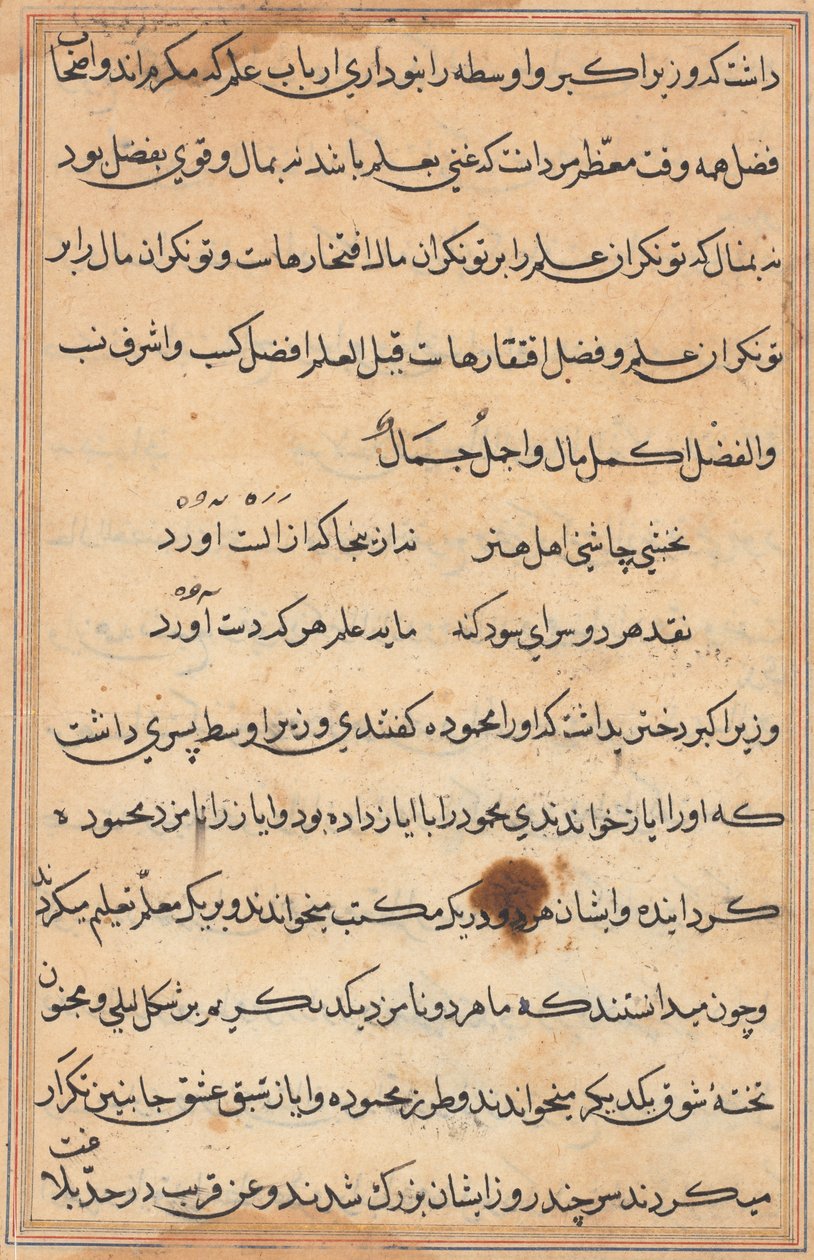 داشت که وزیر اکبر و اوسط را بنوداری ارباب علم که مکرم اند و اصحاب
فضل همه وقت معظّم مردانست که غنی بعلم باشد نه بمال و قوی بفضل بود
نه بمنال که تونکران علم را بر تونکران مال افتخارهاست و تونکران مال را بر
تونکران علم و فضل افتقارهاست قیل العلم افضل کسب و اشرف نسب
والفضل اکمل مال واجملُ جمَالٍ
نخشبی چاشنی اهل هنر ندازینجا که از الست آورد
نقد هر دو سرای سود کند ماید علم هر که دست آورد
وزیر اکبر دختر یداشت که او را محموده کفتندی وزیر اوسط پسری داشت
که او را ایاز خواندندی محمود را با ایاز داده بود و ایاز را نامزد محموده
کرداینده و ایشان هر دو در یک مکتب میخواندند و بر یک معلّم تعلیم میکردند
و چون میدانستند که ما هر دو نامزد یکدیکریم بر شکل لیلی و مجنون
تختهٔ شوق یکدیکر میخواندند و طرز محموده و ایاز سبق عشق جانبین تکرار
میکردند سر چند روز ایشان بزرک شدند و عن قریب در حدّ بلاغت